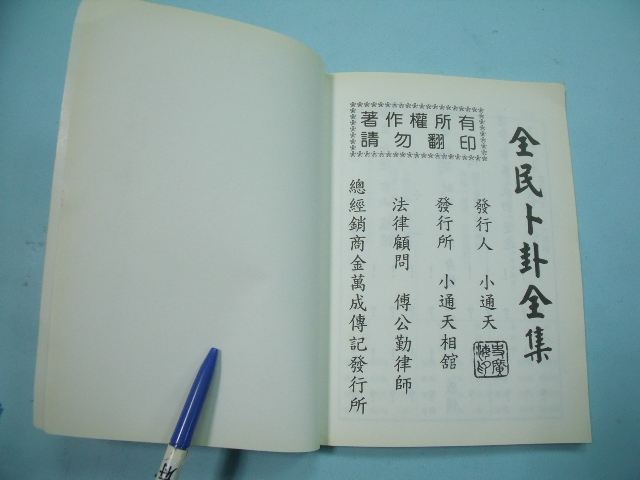 全民卜卦全集
著作權所有
請勿翻印
發行人 小通天
發行所 小通天相舘
法律顧問 傅公勤律師
總經銷商金萬成傳記發行所
府